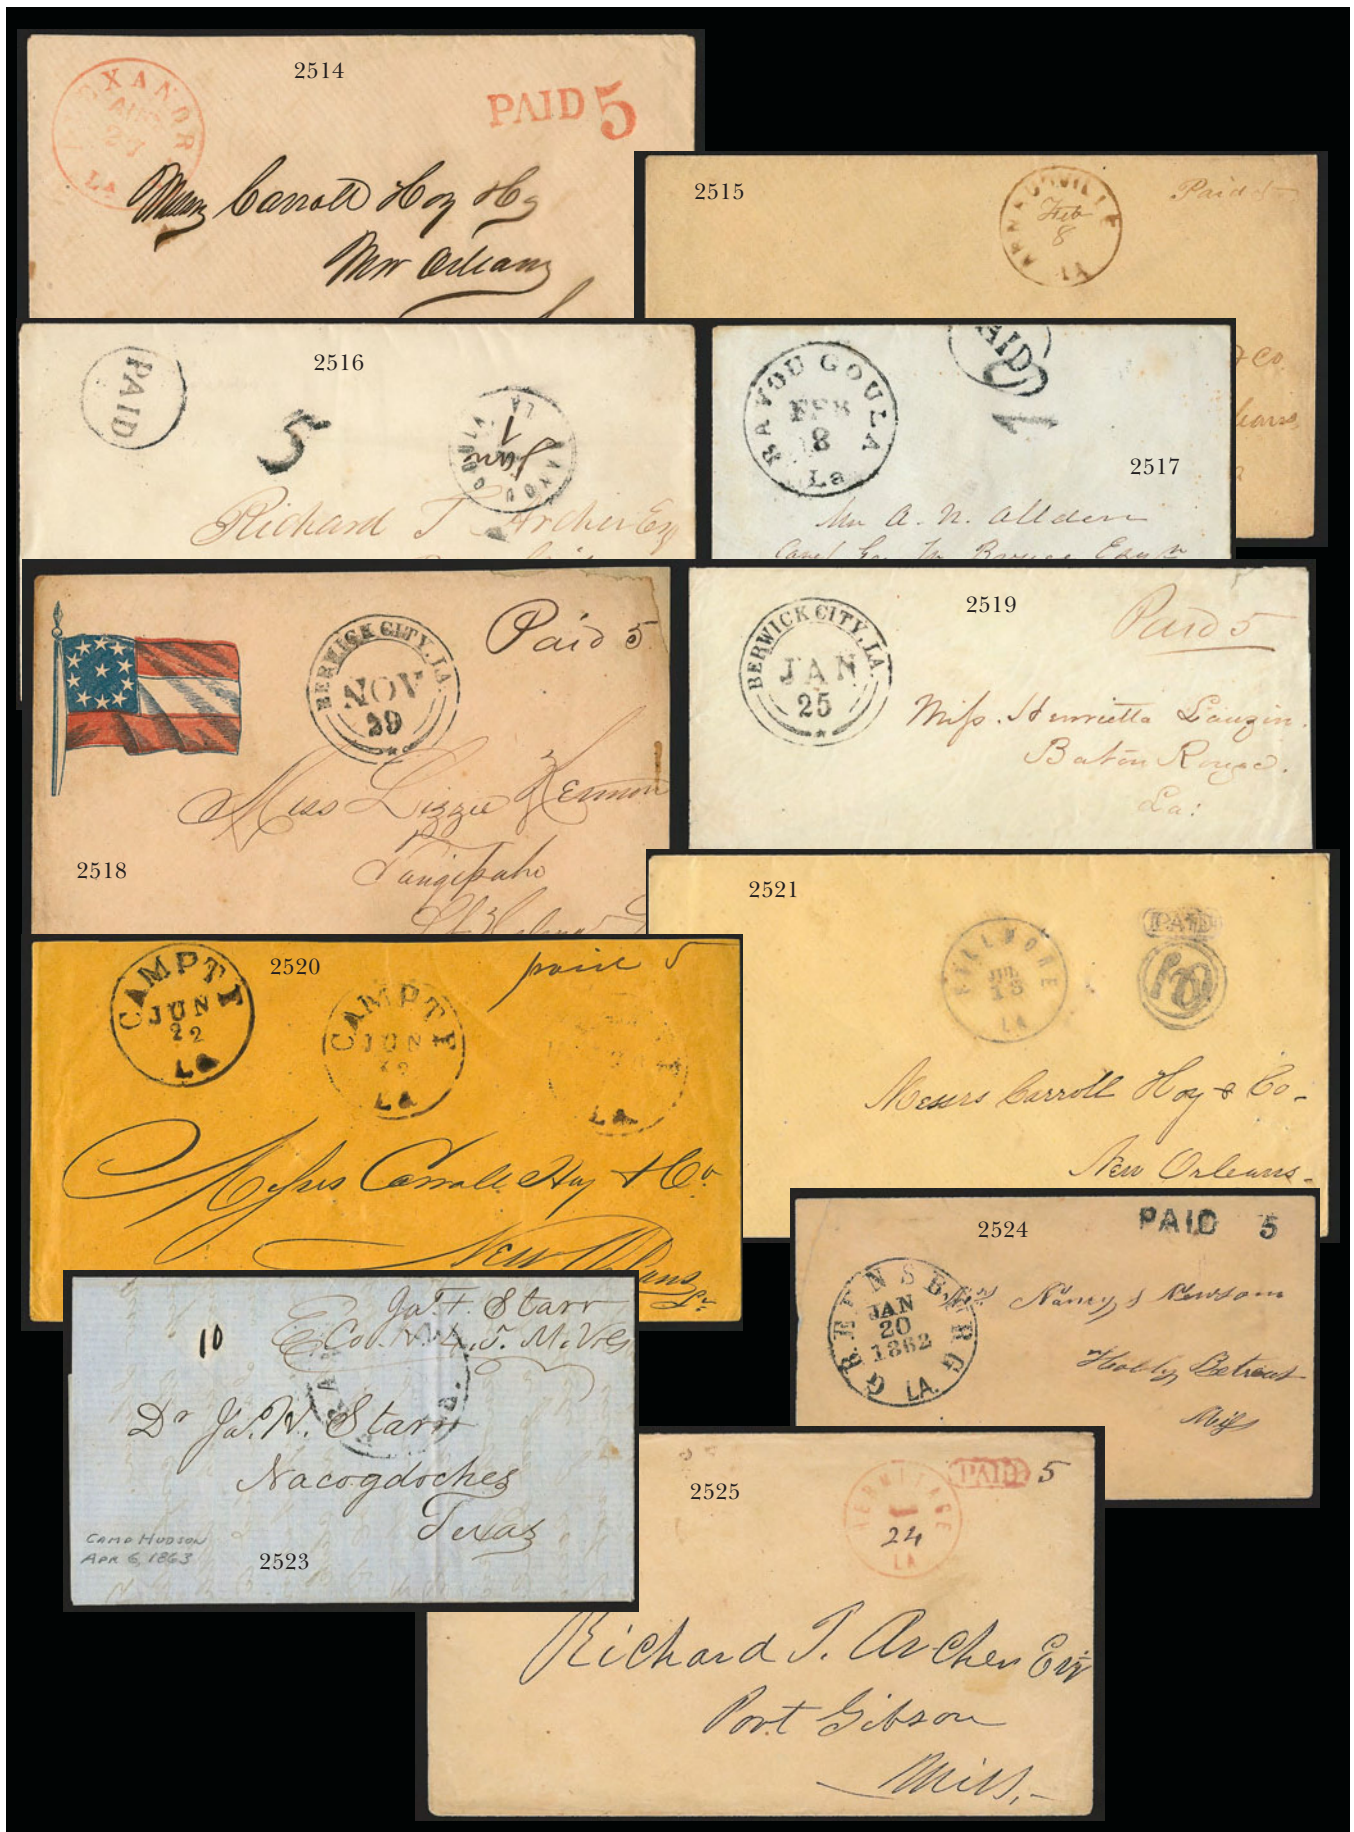 2514
XANDR
AUG
27
LA
PAID 5
Carroll Hoy
New Orleans
2515
ARNAUDVILLE
Feb
8
LA
Paid 5
& Co
leans
2516
PAID
5
LA
Jan
1
Richard T. Archer Esq
2517
BAYOU GOULA
FEB
8
La
AID
10
Mr A. N. Allden
Care
2518
BERWICK CITY, LA.
NOV
29
Paid 5
Miss Lizzie Kennon
Tangipaho
St Helena
2519
BERWICK CITY, LA.
JAN
25
Paid 5
Miss. Henrietta Lauzin.
Baton Rouge.
La:
2520
CAMPTI
JUN
22
La
CAMPTI
JUN
22
La
La
paid 5
Messrs Carroll Hoy & Co.
New Orleans
La
2521
FILLMORE
JUL
13
LA
PAID
10
Messrs Carroll Hoy & Co-
New Orleans-
2524
PAID 5
GREENSBURG
JAN
20
1862
LA.
Nancy J Newsom
Holly Retreat
Miss
2523
Jas. F. Starr
E Co.
10
Dr Jas. H. Starr
Nacogdoches
Texas
CAMP HUDSON
APR 6, 1863
2525
HERMITAGE
24
LA
PAID 5
Richard T. Archer Esqr
Port Gibson
Miss,-